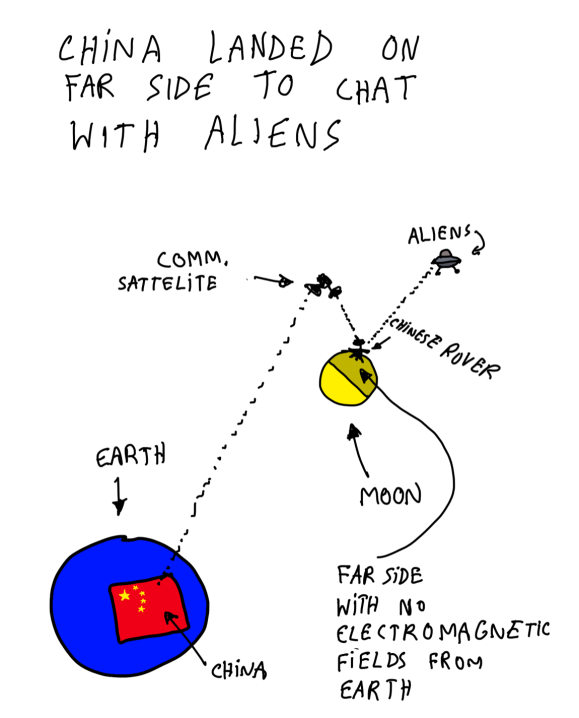 CHINA LANDED ON
FAR SIDE TO CHAT
WITH ALIENS
ALIENS
COMM.
SATTELITE
CHINESE ROVER
EARTH
MOON
FAR SIDE
WITH NO
ELECTROMAGNETIC
FIELDS FROM
EARTH
CHINA